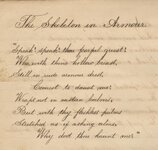 The Skeleton in Armour
"Speak! speak! thou fearful guest!
Who, with thine hollow breast,
Still in rude armour drest,
Comest to daunt me!
Wrapt not in eastern balms,
But with thy fleshless palms
Stretched as if asking alms,
Why dost thou haunt me?"